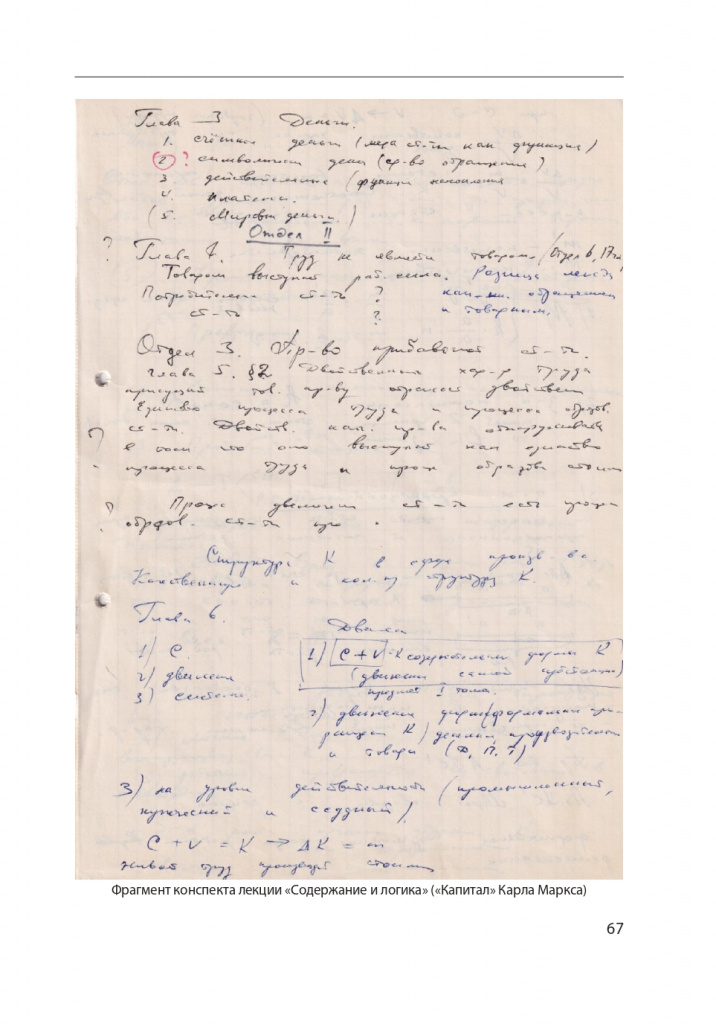 Глава 3 Деньги.
1. счётные деньги (мера ст-ти как функция)
2 ? символич деньги (ср-во обращения)
3. действительные (функция накопления
4. платежи.
(5. Мировые деньги.)
Отдел II
? Глава 4. Труд не является товаром (Отдел 6, 17 гл)
Товаром выступает раб. сила. Разница между
Потребительная ст-ть ? обращением
ст-ть ? и товарным.
Отдел 3. Пр-во прибавочной ст-ти.
Глава 5. §2 Двойственный хар-р труда
присущий тов. пр-ву отражает двойствен
Единство процесса труда и процесса образов.
? ст-ти. Двойств. кап. пр-ва обнаруживается
в том что оно выступает как единство
процесса труда и проц образова стоим
? Процесс увеличения ст-ти есть процесс
образов. ст-ти
Структура К в сфере произв-ва
Качественную и кол. структуру К.
Глава 6.
Движение
1) С.
1) C + V = К содержательная форма К
2) движение
(движение самой субстанции)
3) система.
предмет I тома.
2) движение формы (формальная
К) деньгам производительн
и товары (Д, П, Т)
3) на уровне действительности (промышленный,
купеческий и ссудный)
C + V = K → ΔK = m
живой труд производит стоим
Фрагмент конспекта лекции «Содержание и логика» («Капитал» Карла Маркса)
67